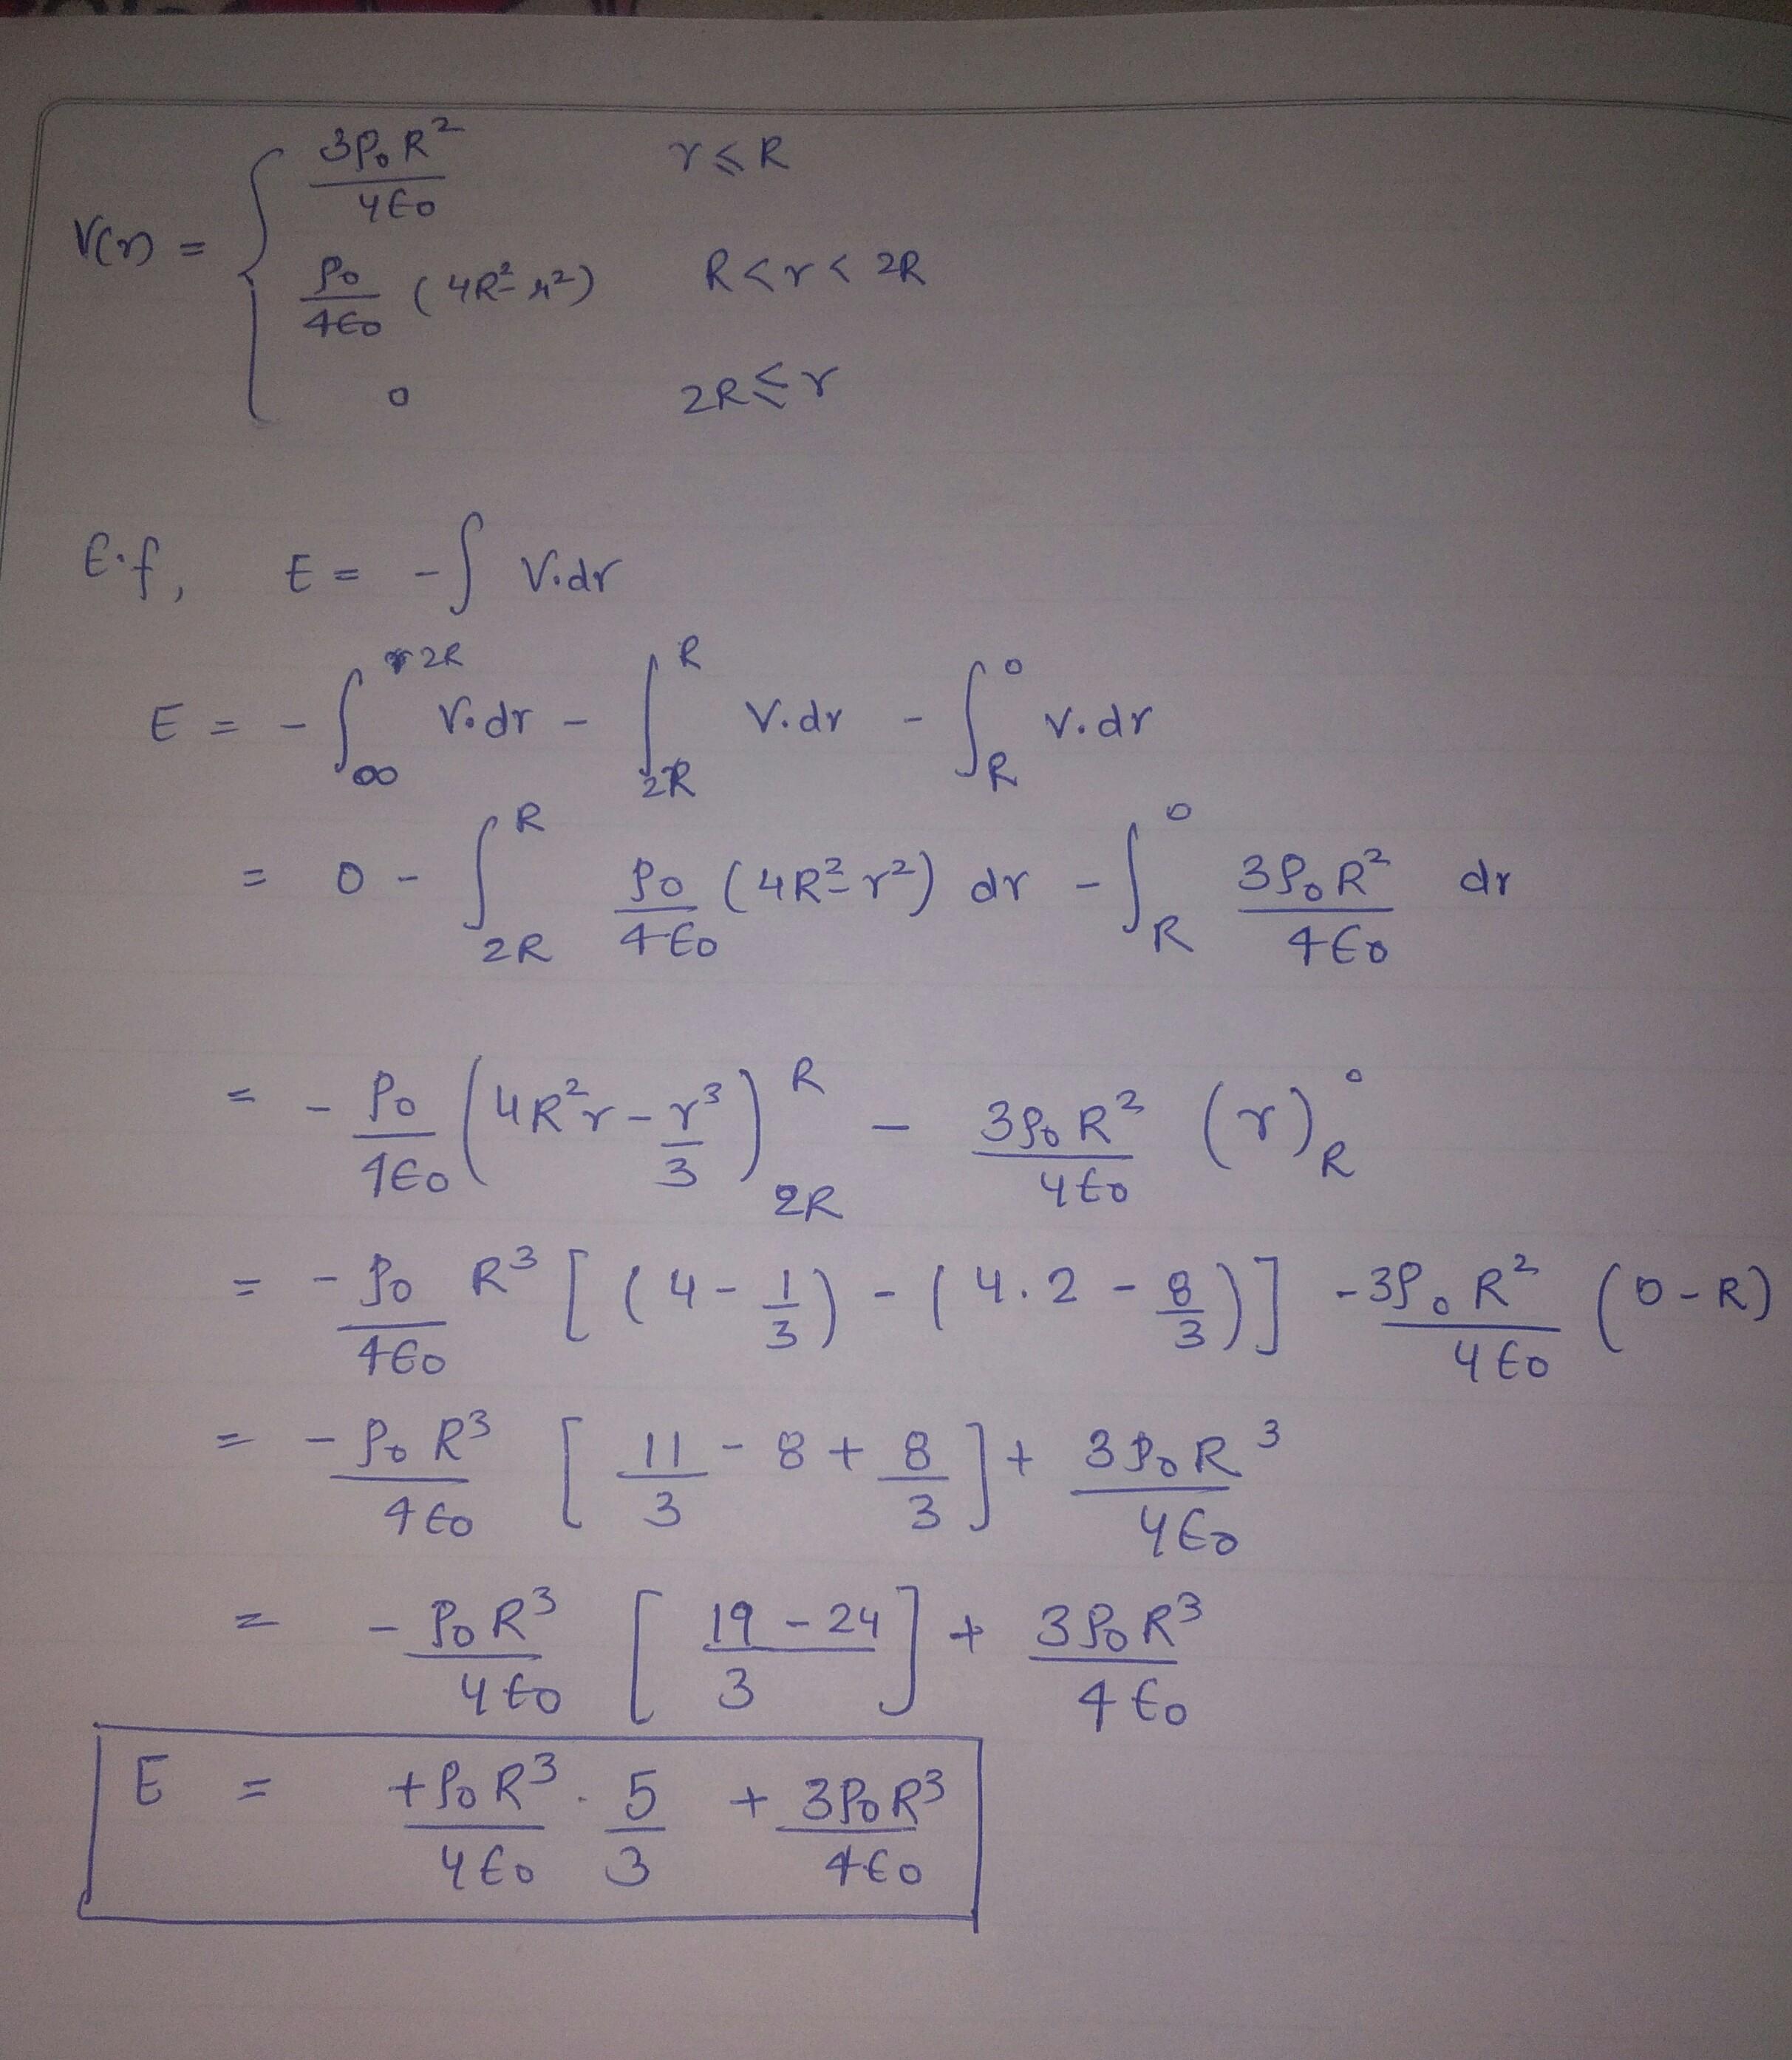 V(r) = { 3ρ₀R²/4ϵ₀    r ≤ R
ρ₀/4ϵ₀ (4R² - r²)    R < r < 2R
0    2R ≤ r
E.f,    E = -∫ V.dr
E = -∫_∞^2R V.dr - ∫_2R^R V.dr - ∫_R^0 V.dr
= 0 - ∫_2R^R ρ₀/4ϵ₀ (4R² - r²) dr - ∫_R^0 3ρ₀R²/4ϵ₀ dr
= - ρ₀/4ϵ₀ (4R²r - r³/3)_2R^R - 3ρ₀R²/4ϵ₀ (r)_R^0
= - ρ₀/4ϵ₀ R³ [(4 - 1/3) - (4.2 - 8/3)] - 3ρ₀R²/4ϵ₀ (0 - R)
= - ρ₀R³/4ϵ₀ [11/3 - 8 + 8/3] + 3ρ₀R³/4ϵ₀
= - ρ₀R³/4ϵ₀ [19 - 24/3] + 3ρ₀R³/4ϵ₀
E = + ρ₀R³/4ϵ₀ . 5/3 + 3ρ₀R³/4ϵ₀